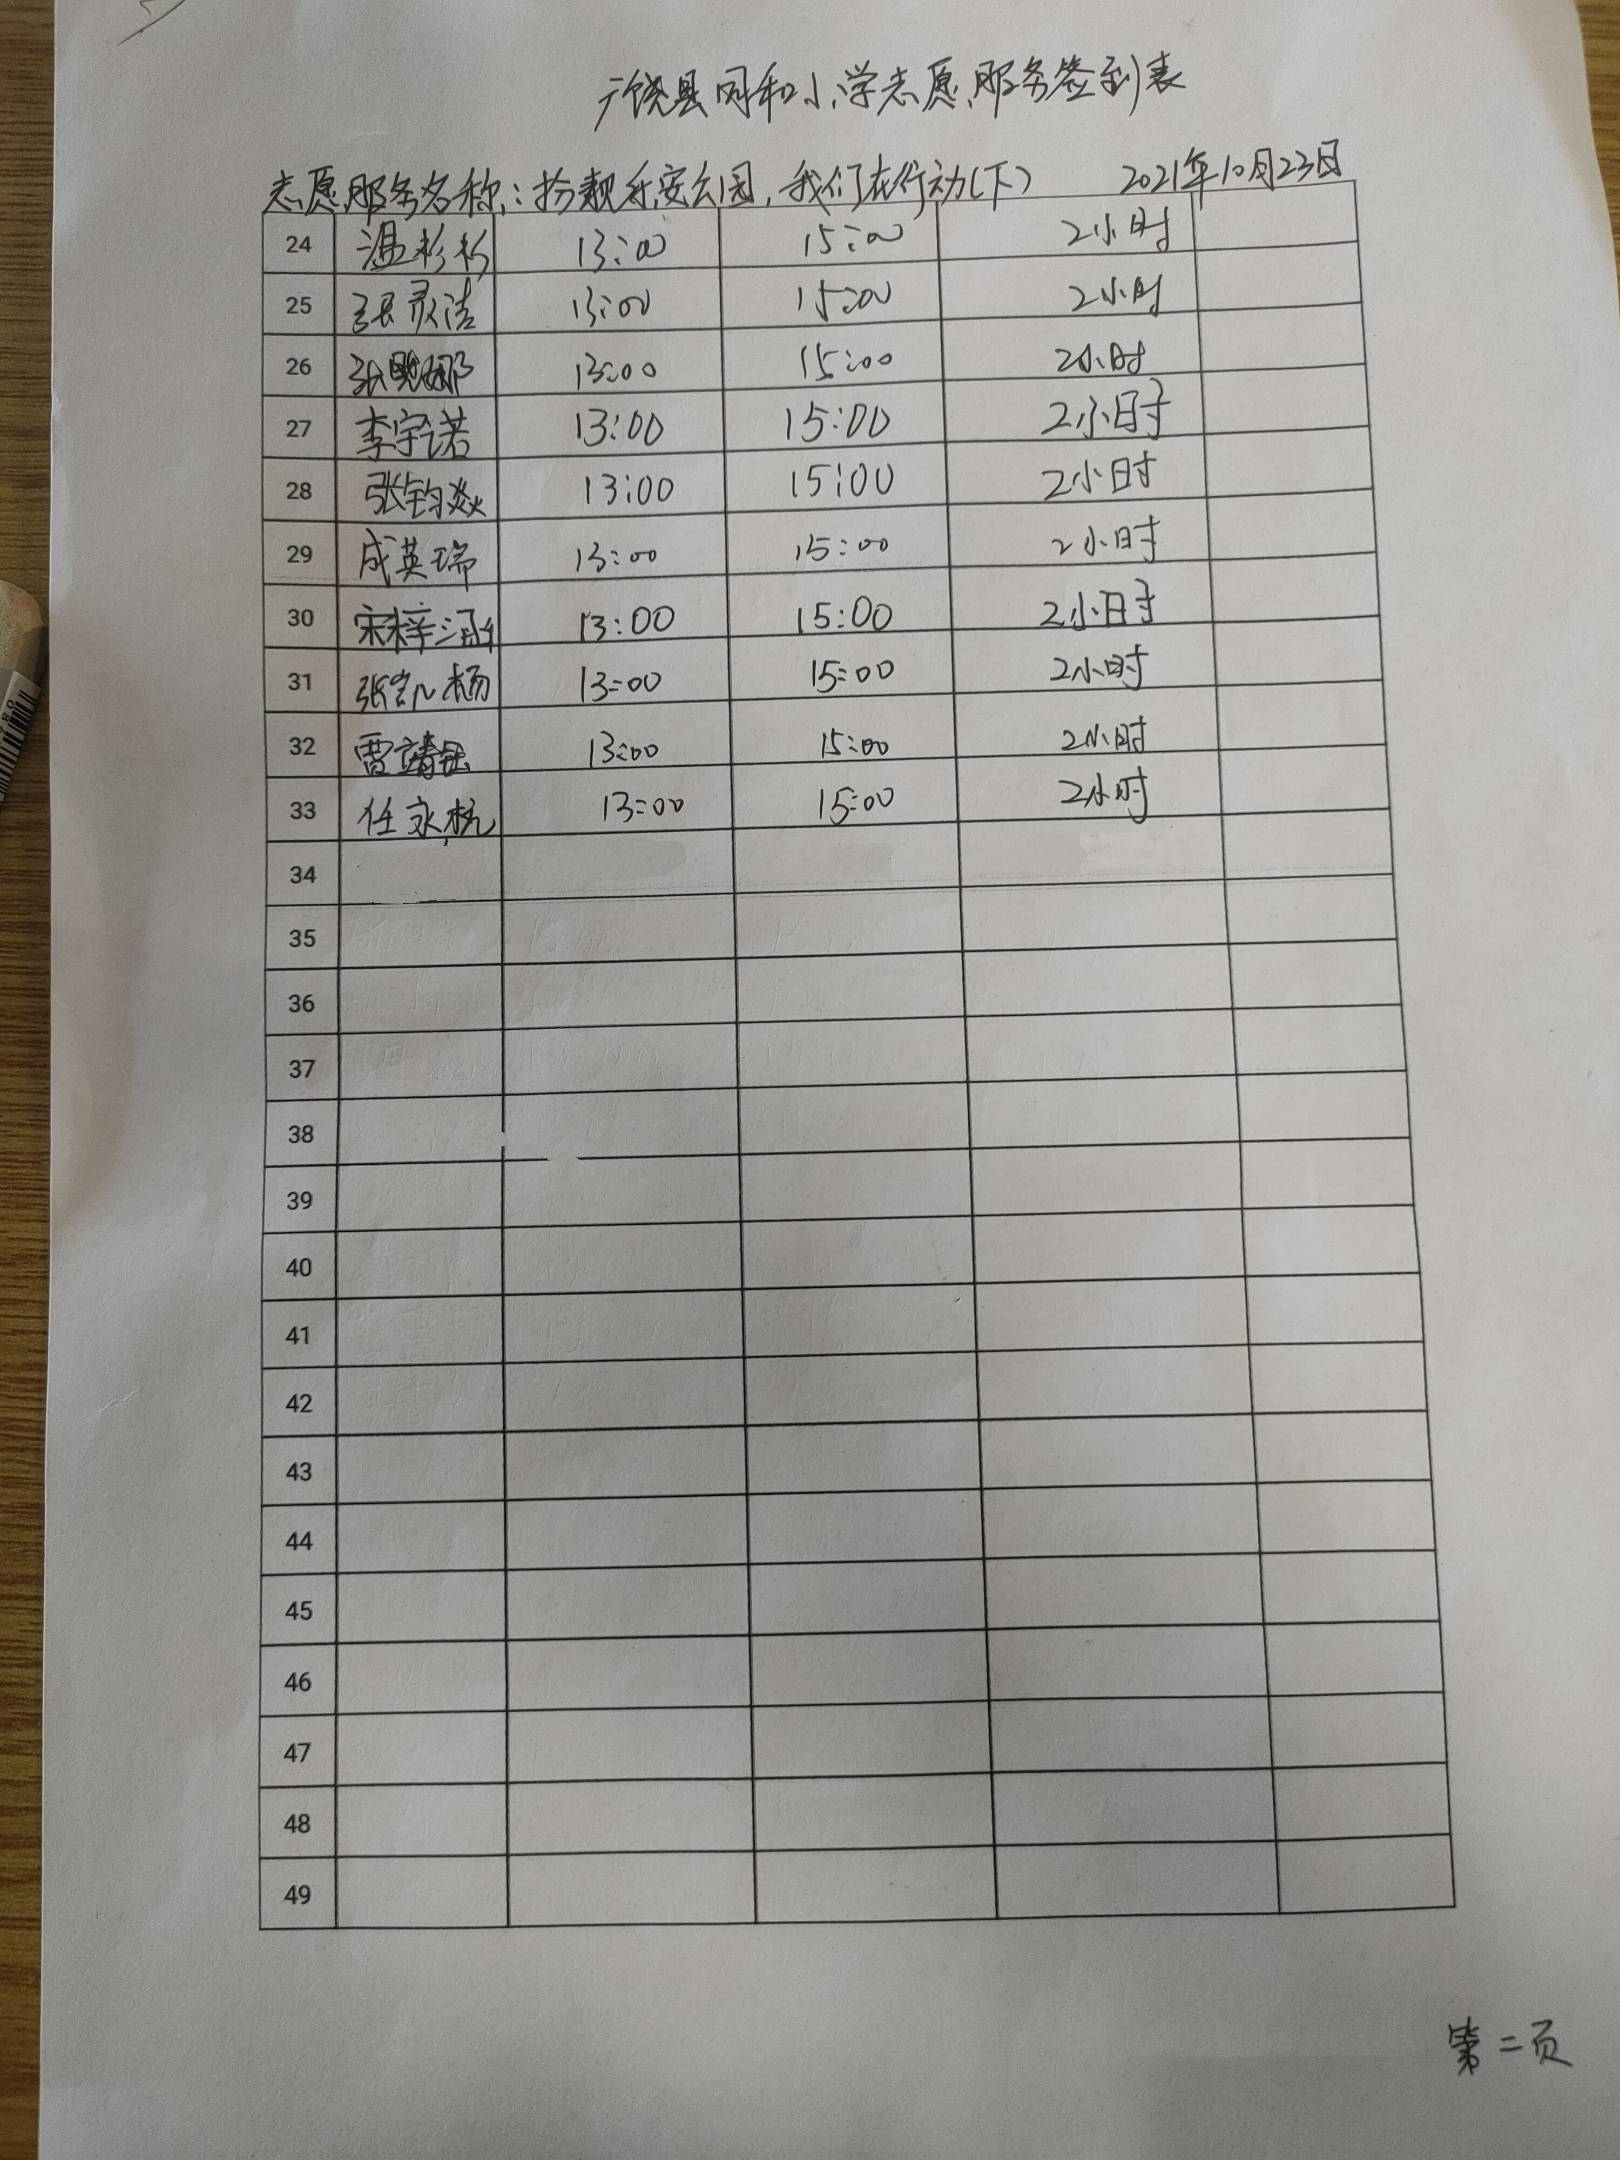 广饶县同和小学志愿服务签到表
志愿服务名称:扮靓乐安公园,我们在行动(下) 2021年10月23日
24 温杉杉 13:00 15:00 2小时
25 张灵洁 13:00 15:00 2小时
26 张 娜 13:00 15:00 2小时
27 李宇诺 13:00 15:00 2小时
28 张钧焱 13:00 15:00 2小时
29 成英瑞 13:00 15:00 2小时
30 宋梓涵 13:00 15:00 2小时
31 张 杨 13:00 15:00 2小时
32 贾靖 13:00 15:00 2小时
33 任永杭 13:00 15:00 2小时
34
35
36
37
38
39
40
41
42
43
44
45
46
47
48
49
第二页